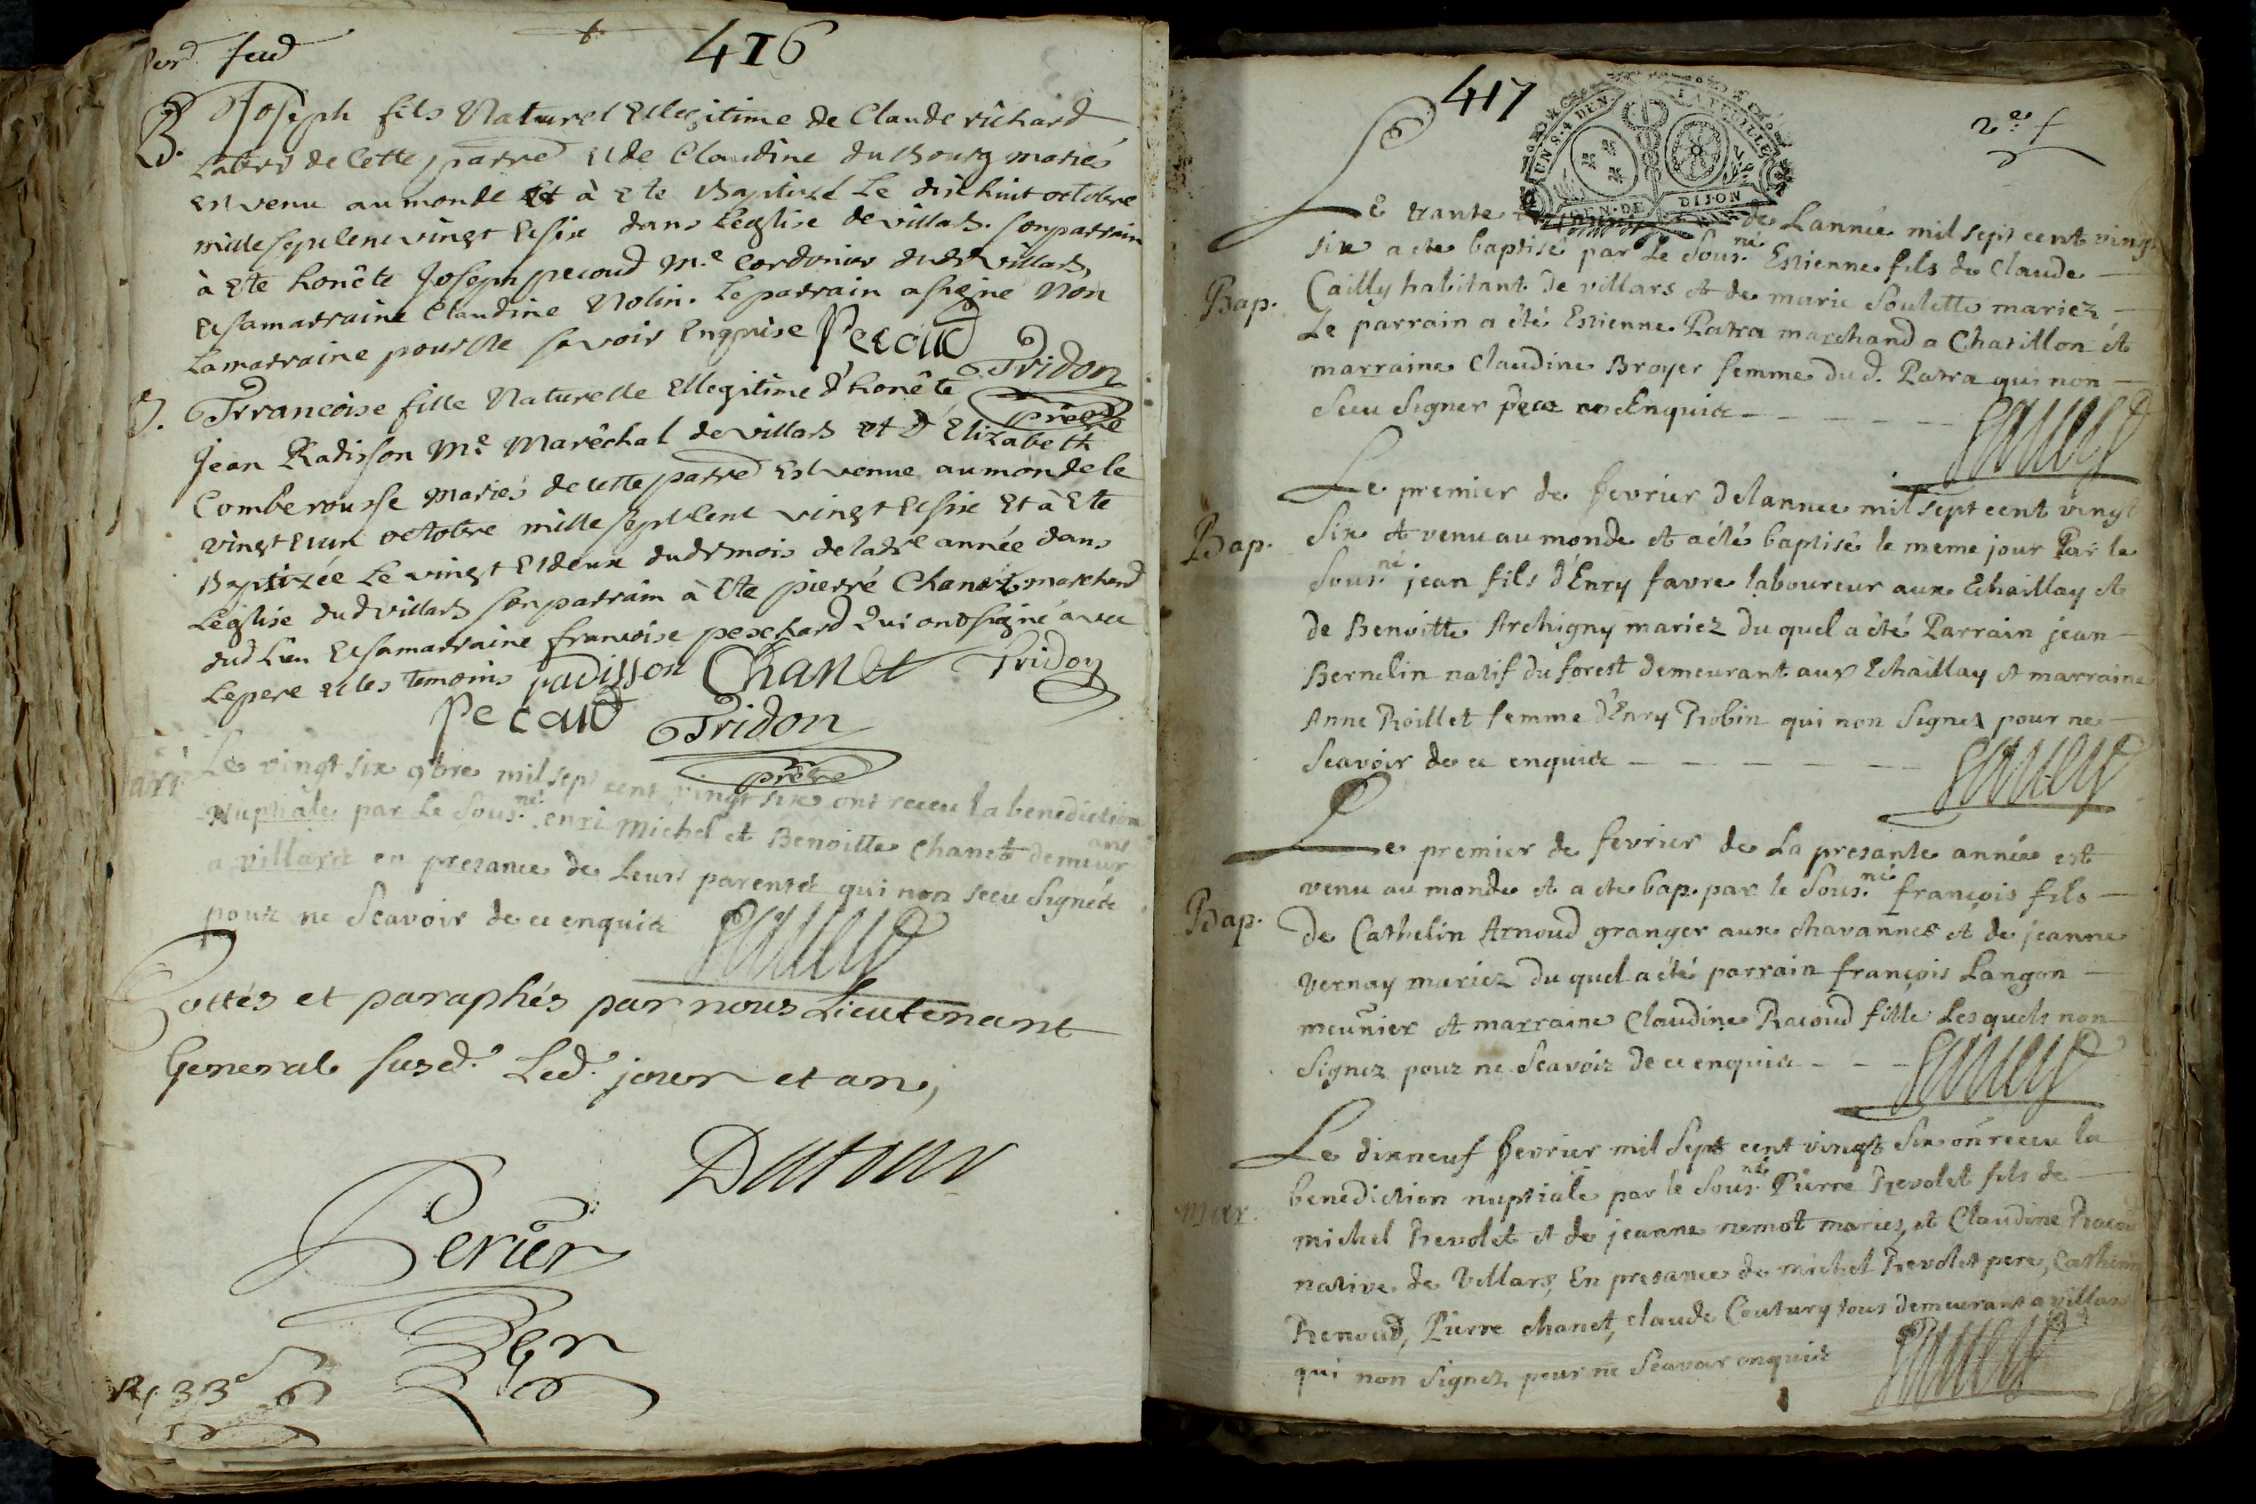 416
feud
B. Joseph fils Naturel Ellegitime de Claude richard
de Cette parre et de Claudine du Bourg mariés
est venu au monde Et à Ete Baptizé Le dix huit octobre
mille sept Cent vingt Et six dans L'eglise de villars. son parrain
à Ete honête Joseph pecoud Me. Cordonier dud villars,
Et sa marraine Claudine Nolin. Le parrain a signé Non
La marraine pour ne savoir Enquise Pecoud
Tridon
prêtre
Francoise fille Naturelle Ellegitime d'honête
jean Radisson Me Marêchal de villars et d'Elizabeth
Comberousse Mariés de cette parre Est venue au monde le
vingt Et un octobre mille sept Cent vingt Et six Et à Ete
Baptizée Le vingt Et deux dud mois de lad année dans
L'eglise dud villars son parrain à Ete pierre Chanet marchand
dud Lieu Et sa marraine francoise peschard Qui ont signé avec
Le pere et les temoins radisson Chanet Tridon
Pecaud Tridon
prêtre
Le vingt six 9bre mil sept cent vingt six ont receu la benediction
Nuptiale par Le Sous.né enri Michel et Benoitte Chanet demeurant
a villars en presance de Leurs parents qui non sceu Signés
pour ne Scavoir de ce enquis
Cottés et paraphés par nous Lieutenant
General susd. Led. jour et an,
Dutour
Perier
33
417
GEN. DE DIJON
2e f
Le trante de Lannée mil sept cent vingt
six a ete baptisé par Le Sous.né Estienne fils de Claude
Bap. Cailly habitant de villars et de marie Soulette mariez
Le parrain a été Estienne Patra marchand a Chatillon et
marraine Claudine Broyer femme dud. Patra qui non
Sceu Signer de ce Enquis
Le premier de fevrier de lannee mil sept cent vingt
Bap. Six et venu au monde et a été baptisé le meme jour Par le
Sous.né jean fils d'Enry favre laboureur aux Echaillay et
de Benoitte Archigny mariez du quel a été Parrain jean
Bernelin natif du forest demeurant aux Echaillay et marraine
Anne Roillet femme d'Enry Robin qui non Signez pour ne
Scavoir de ce enquis
Le premier de fevrier de La presante année est
venu au monde et a ete bap. par le Sous.né françois fils
Bap. De Cathelin Arnoud granger aux chavannes et de jeanne
Vernay mariez du quel a été parrain françois Langon
meunier et marraine Claudine Racoud fille Lesquels non
Signez pour ne Scavoir de ce enquis
Le dixneuf fevrier mil Sept cent vingt Six on receu la
benediction nuptiale par le Sous.né Pierre Revolet fils de
mar. michel Revolet et de jeanne nemot mariez, et Claudine Racoud
native de Villars, En presance de michel Revolet pere,
Renoud, Pierre chanet, claude Coutury tous demeurant a villars
qui non Signez pour ne Scavoir enquis